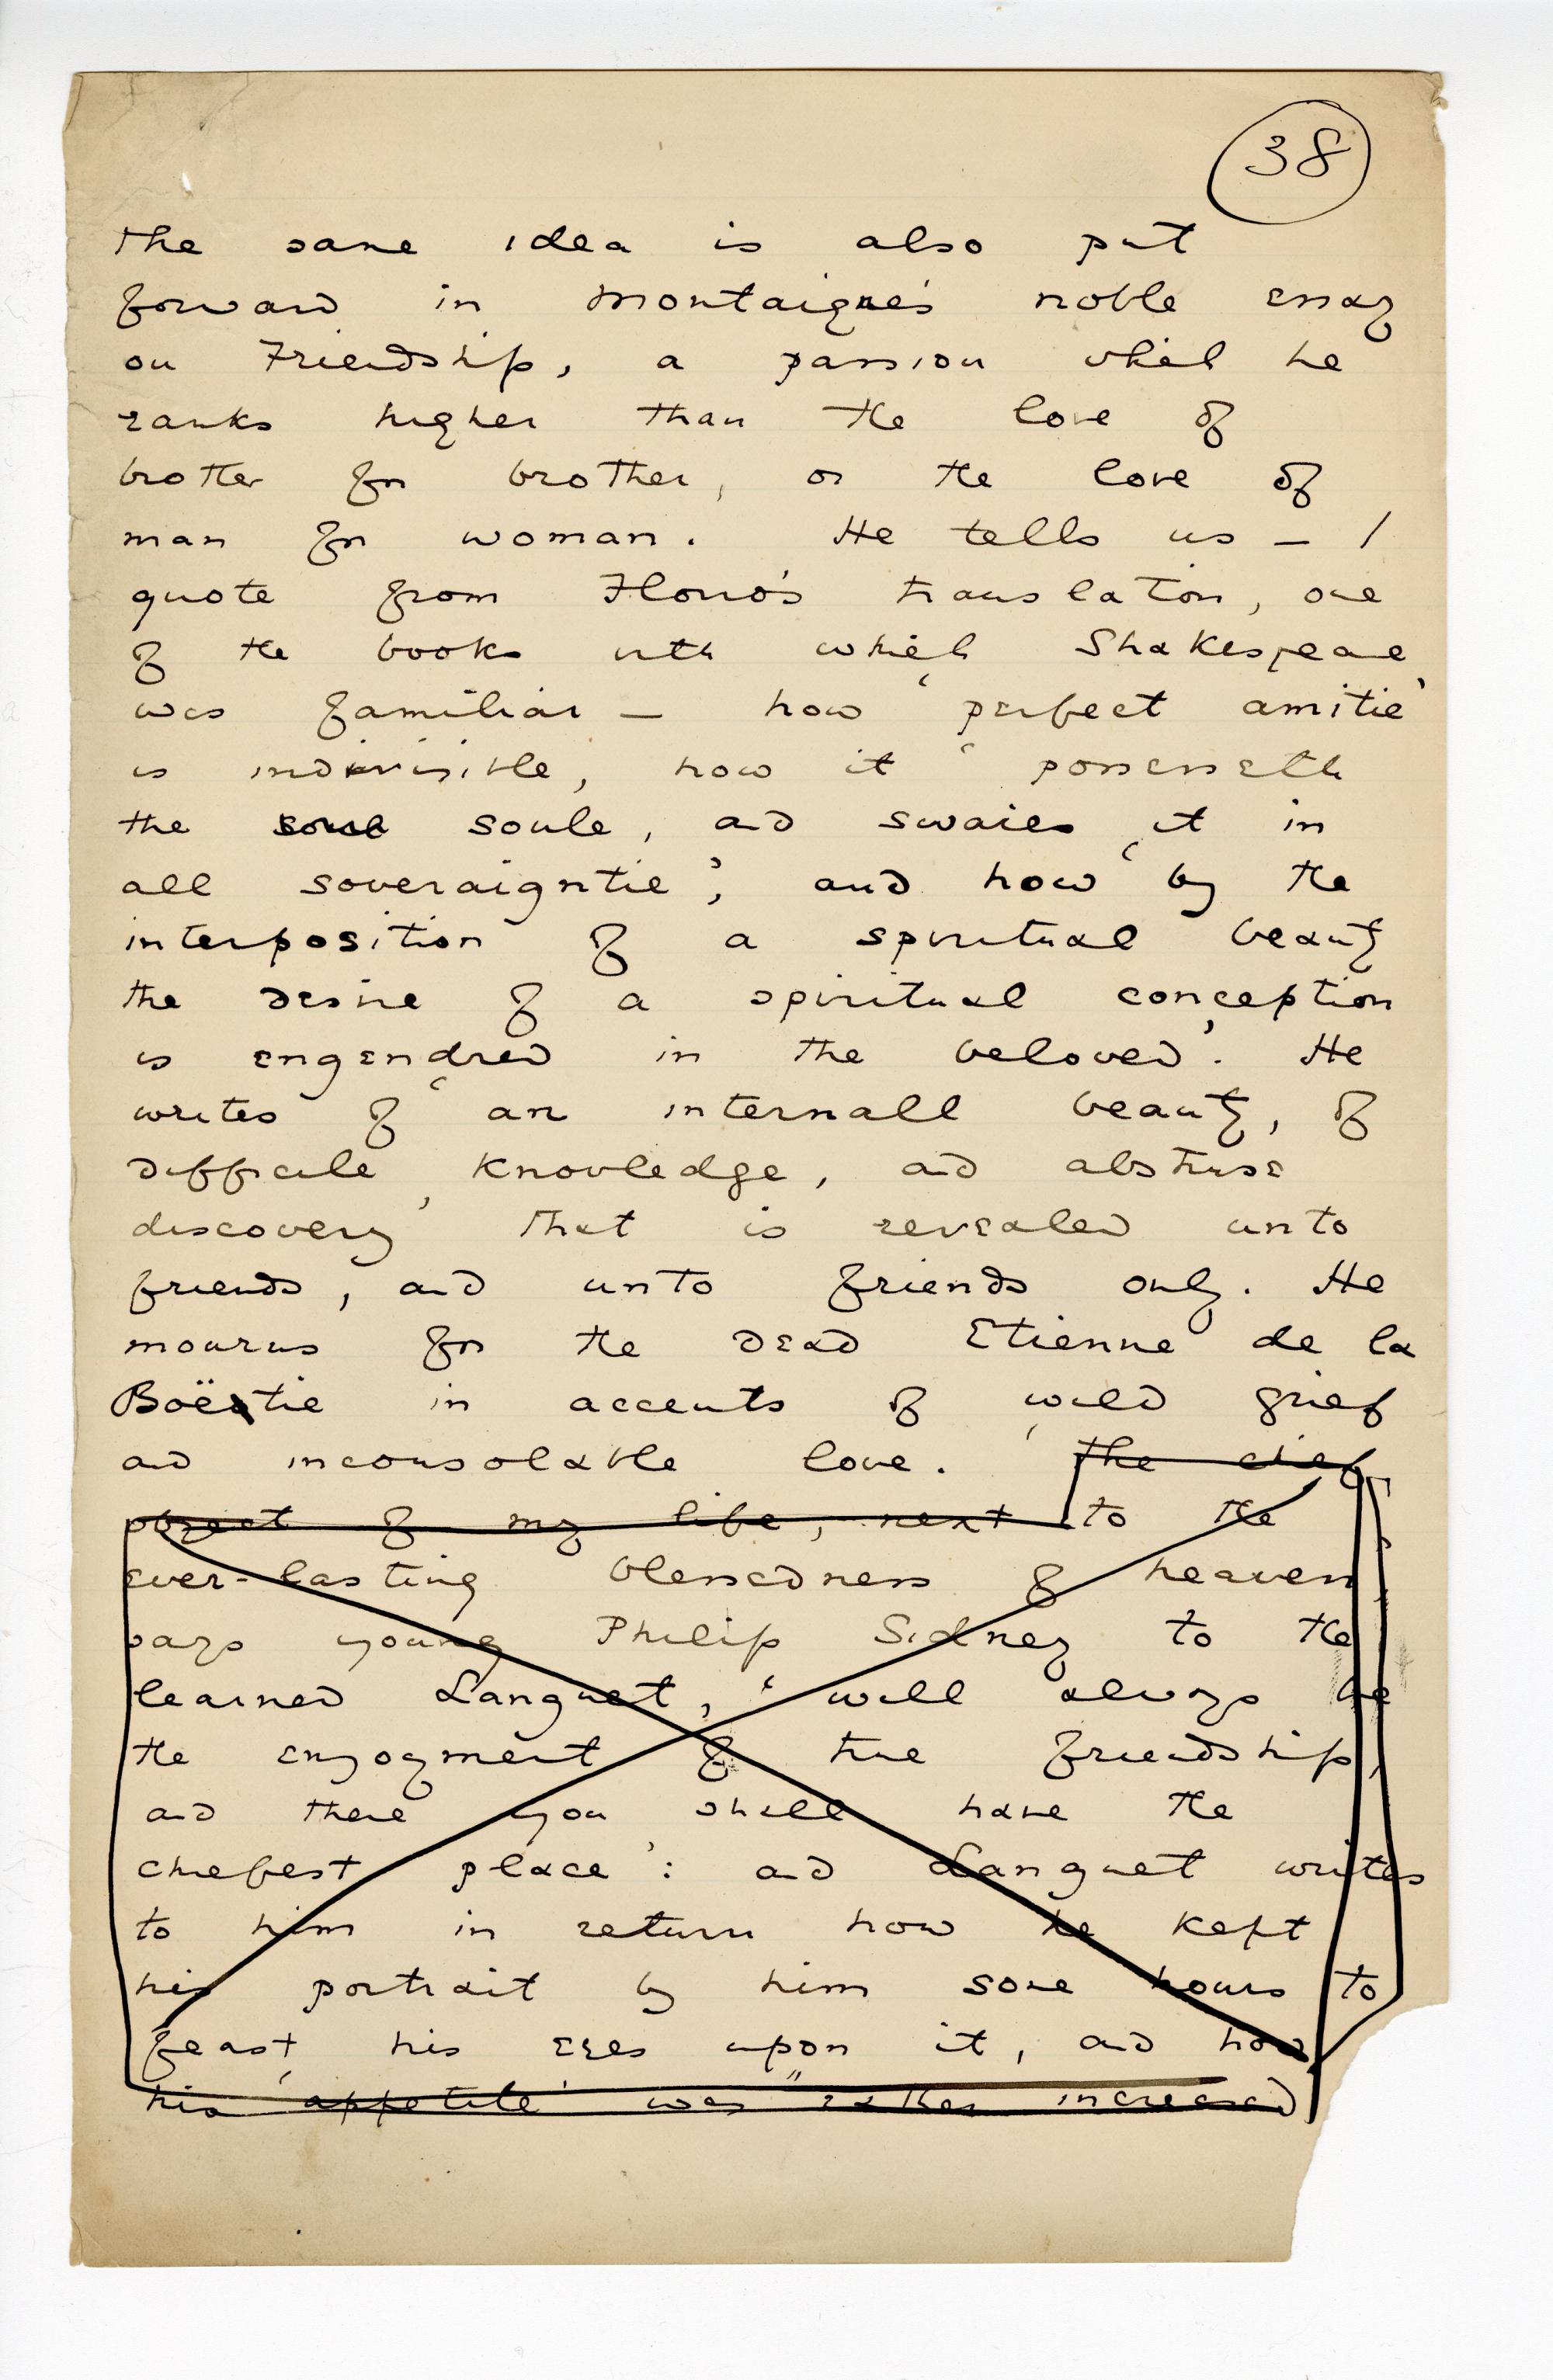 38
The same idea is also put
forward in Montaigne's noble essay
on Friendship, a passion which he
ranks higher than the love of
brother for brother, or the love of
man for woman. He tells us — I
quote from Florio's translation, one
of the books with which Shakespeare
was familiar — how 'perfect amitie'
is indivisible, how it 'possesseth
the soul soule, and swaies it in
all soveraigntie', and how 'by the
interposition of a spiritual beauty
the desire of a spiritual conception
is engendred in the beloved'. He
writes of 'an internall beauty, of
difficile knowledge, and abstruse
discovery' that is revealed unto
friends, and unto friends only. He
mourns for the dead Etienne de la
Boëtie in accents of wild grief
and inconsolable love. 'The chief
object of my life, next to the
ever-lasting blessedness of heaven,
says young Philip Sidney to the
learned Languet, 'will always be
the enjoyment of true friendship,
and there you shall have the
chiefest place': and Languet writes
to him in return how he kept
his portrait by him some hours to
feast his eyes upon it, and how
his 'appetite' was "rather increased